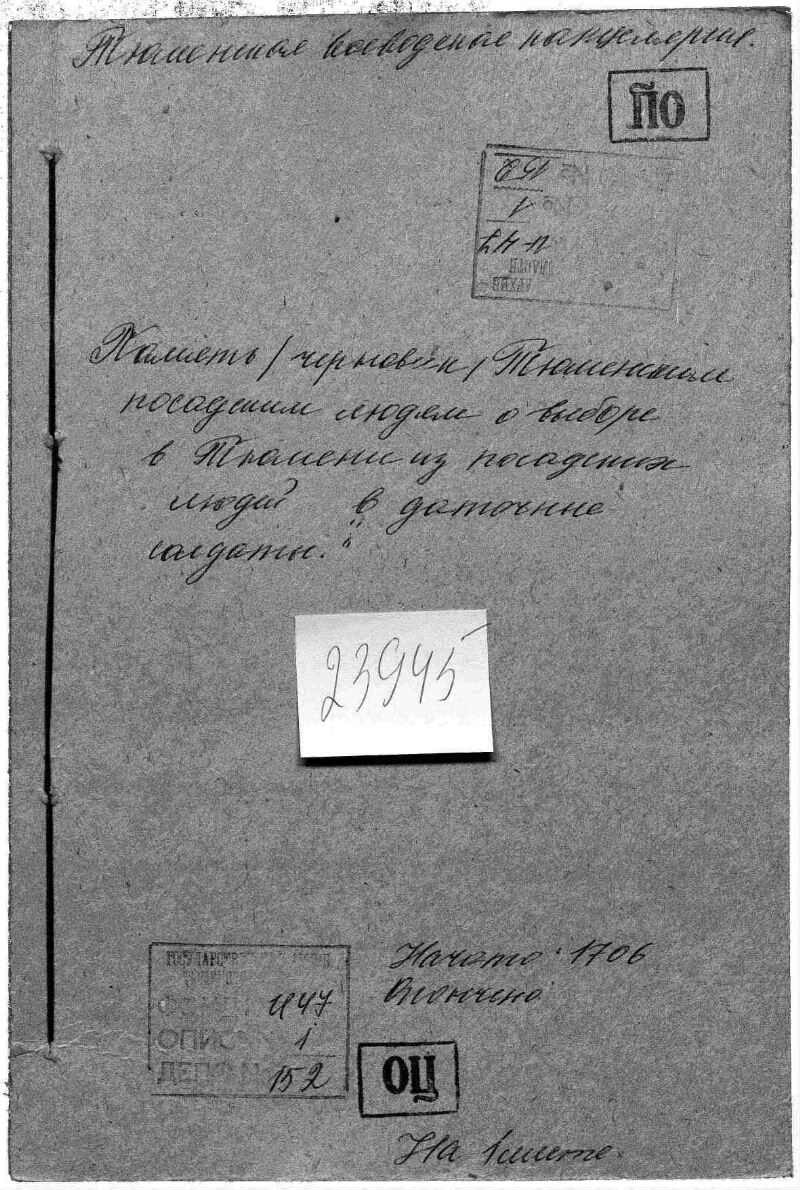 Тюменская воеводская канцелярия.
ПО
№ 152
1
И-47
АРХИВ
Память / черновик / Тюменским
посадским людям о выборе
в Тюмени из посадских
людей "в даточные
солдаты."
23945
Начато: 1706
Окончено
ФОНД И47
ОПИСЬ 1
ДЕЛО № 152
ОЦ
На 1 листе.